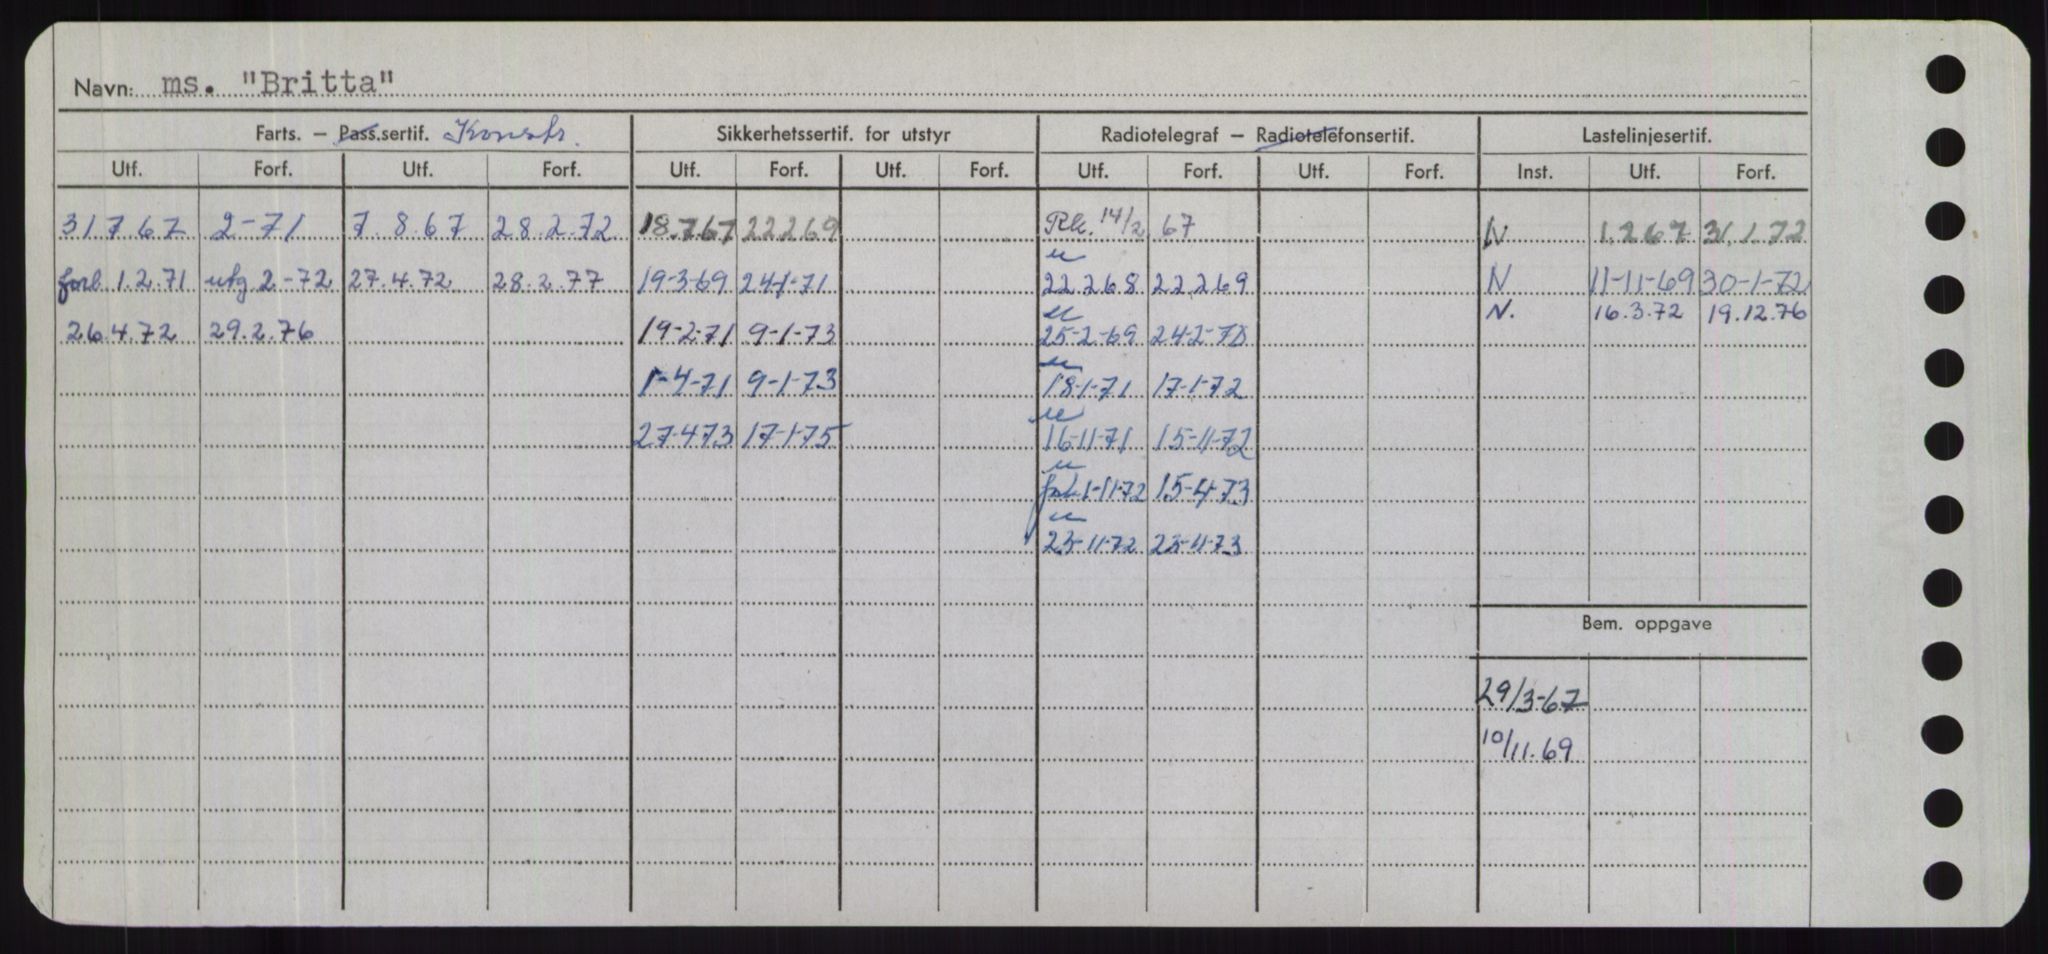 Navn: ms. "Britta"
Farts. – Pass.sertif. Konstr. Sikkerhetssertif. for utstyr Radiotelegraf – Radiotelefonsertif. Lastelinjesertif.
Utf. Forf. Utf. Forf. Utf. Forf. Utf. Forf. Utf. Forf. Utf. Forf. Inst. Utf. Forf.
31 7 67 2-71 7 8 67 28.2.72 18.7.67 22 2 69 14/2 67 N 1.2 67 31.1.72
forl. 1.2.71 utg 2-72 27.4.72 28.2.77 19-3-69 24-1-71 22 2 68 22 2 69 N 11-11-69 30-1-72
N. 16.3.72 19.12.76
26.4.72 29.2.76 19-2-71 9-1-73 25-2-69 24-2-70
1-4-71 9-1-73 18-1-71 17-1-72
27-4-73 17-1-75 16-11-71 15-11-72
1-11-72 15-4-73
23-11-72 23-11-73
Bem. oppgave
29/3-67
10/11.69